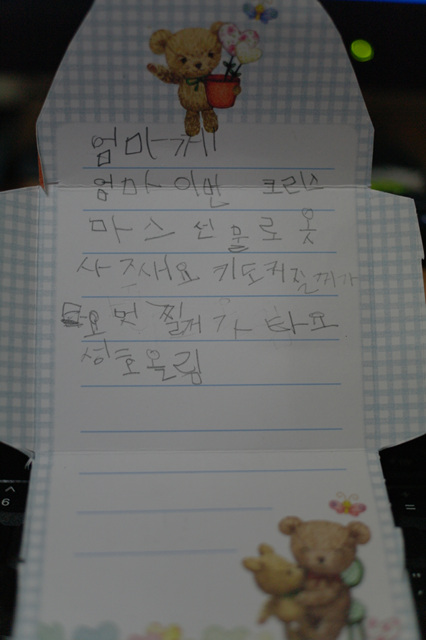 엄마께
엄마 이번 크리스
마스 선물로 옷
사주새요 키도커질꺼가
타요 멋찔거가 타요
성호올림
^
6
=